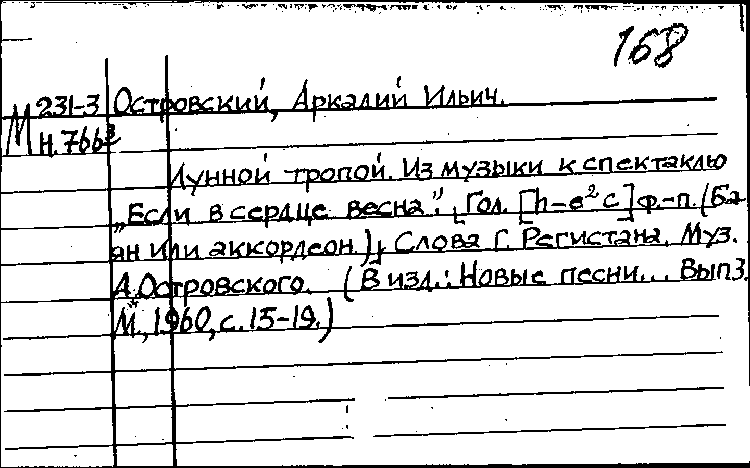 168
М 231-3 Островский, Аркадий Ильич.
Н.766
Лунной тропой. Из музыки к спектаклю
„Если в сердце весна". [Гол. [h-e² c] ф.-п. (Ба-
ян или аккордеон.)] Слова Г. Регистана. Муз.
А. Островского. (В изд.: Новые песни... Вып 3.
М., 1960, с. 15-19.)